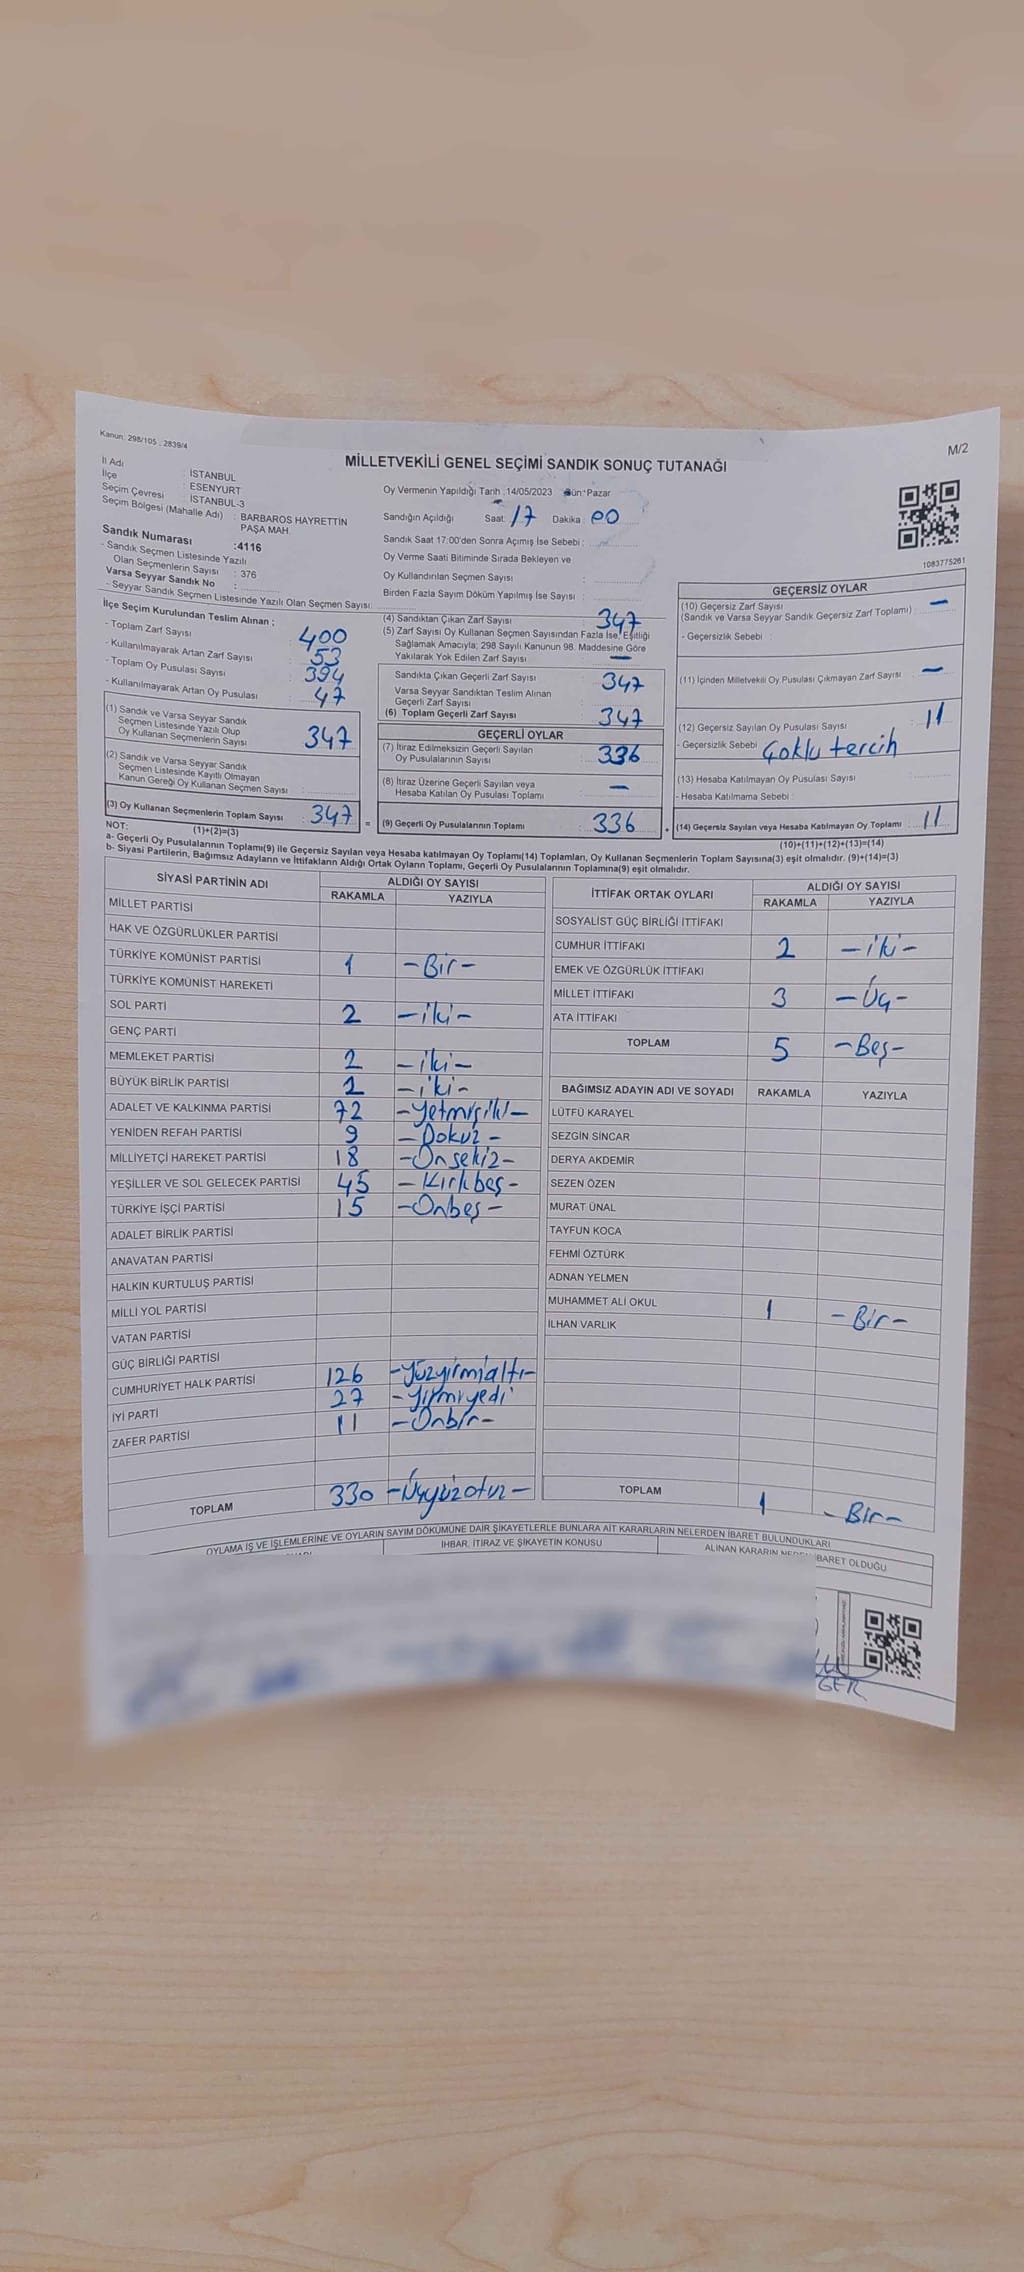 Kanun: 298/105 , 2839/4
M/2
MİLLETVEKİLİ GENEL SEÇİMİ SANDIK SONUÇ TUTANAĞI
İl Adı : İSTANBUL
İlçe : ESENYURT
Seçim Çevresi : İSTANBUL-3
Seçim Bölgesi (Mahalle Adı) : BARBAROS HAYRETTİN PAŞA MAH.
Sandık Numarası :4116
- Sandık Seçmen Listesinde Yazılı
Olan Seçmenlerin Sayısı : 376
Varsa Seyyar Sandık No :
- Seyyar Sandık Seçmen Listesinde Yazılı Olan Seçmen Sayısı:
Oy Vermenin Yapıldığı Tarih :14/05/2023 Gün: Pazar
Sandığın Açıldığı Saat: 17 Dakika: 00
Sandık Saat 17:00'den Sonra Açılmış İse Sebebi :
Oy Verme Saati Bitiminde Sırada Bekleyen ve
Oy Kullandırılan Seçmen Sayısı :
Birden Fazla Sayım Döküm Yapılmış İse Sayısı :
1083775261
İlçe Seçim Kurulundan Teslim Alınan ;
- Toplam Zarf Sayısı : 400
- Kullanılmayarak Artan Zarf Sayısı : 53
- Toplam Oy Pusulası Sayısı : 394
- Kullanılmayarak Artan Oy Pusulası : 47
(1) Sandık ve Varsa Seyyar Sandık
Seçmen Listesinde Yazılı Olup
Oy Kullanan Seçmenlerin Sayısı : 347
(2) Sandık ve Varsa Seyyar Sandık
Seçmen Listesinde Kayıtlı Olmayan
Kanun Gereği Oy Kullanan Seçmen Sayısı :
(3) Oy Kullanan Seçmenlerin Toplam Sayısı : 347 =
(4) Sandıktan Çıkan Zarf Sayısı : 347
(5) Zarf Sayısı Oy Kullanan Seçmen Sayısından Fazla İse, Eşitliği
Sağlamak Amacıyla; 298 Sayılı Kanunun 98. Maddesine Göre
Yakılarak Yok Edilen Zarf Sayısı : —
Sandıkta Çıkan Geçerli Zarf Sayısı : 347
Varsa Seyyar Sandıktan Teslim Alınan
Geçerli Zarf Sayısı :
(6) Toplam Geçerli Zarf Sayısı : 347
GEÇERLİ OYLAR
(7) İtiraz Edilmeksizin Geçerli Sayılan
Oy Pusulalarının Sayısı : 336
(8) İtiraz Üzerine Geçerli Sayılan veya
Hesaba Katılan Oy Pusulası Toplamı : —
(9) Geçerli Oy Pusulalarının Toplamı : 336 +
GEÇERSİZ OYLAR
(10) Geçersiz Zarf Sayısı
(Sandık ve Varsa Seyyar Sandık Geçersiz Zarf Toplamı) : —
- Geçersizlik Sebebi :
(11) İçinden Milletvekili Oy Pusulası Çıkmayan Zarf Sayısı : —
(12) Geçersiz Sayılan Oy Pusulası Sayısı : 11
- Geçersizlik Sebebi : Çoklu tercih
(13) Hesaba Katılmayan Oy Pusulası Sayısı :
- Hesaba Katılmama Sebebi :
(14) Geçersiz Sayılan veya Hesaba Katılmayan Oy Toplamı : 11
NOT: (1)+(2)=(3)
(10)+(11)+(12)+(13)=(14)
a- Geçerli Oy Pusulalarının Toplamı(9) ile Geçersiz Sayılan veya Hesaba katılmayan Oy Toplamı(14) Toplamları, Oy Kullanan Seçmenlerin Toplam Sayısına(3) eşit olmalıdır. (9)+(14)=(3)
b- Siyasi Partilerin, Bağımsız Adayların ve İttifakların Aldığı Ortak Oyların Toplamı, Geçerli Oy Pusulalarının Toplamına(9) eşit olmalıdır.
SİYASİ PARTİNİN ADI ALDIĞI OY SAYISI
RAKAMLA YAZIYLA
MİLLET PARTİSİ
HAK VE ÖZGÜRLÜKLER PARTİSİ
TÜRKİYE KOMÜNİST PARTİSİ 1 -Bir-
TÜRKİYE KOMÜNİST HAREKETİ
SOL PARTİ 2 -iki-
GENÇ PARTİ
MEMLEKET PARTİSİ 2 -iki-
BÜYÜK BİRLİK PARTİSİ 2 -iki-
ADALET VE KALKINMA PARTİSİ 72 -Yetmişiki-
YENİDEN REFAH PARTİSİ 9 -Dokuz-
MİLLİYETÇİ HAREKET PARTİSİ 18 -Onsekiz-
YEŞİLLER VE SOL GELECEK PARTİSİ 45 -Kırkbeş-
TÜRKİYE İŞÇİ PARTİSİ 15 -Onbeş-
ADALET BİRLİK PARTİSİ
ANAVATAN PARTİSİ
HALKIN KURTULUŞ PARTİSİ
MİLLİ YOL PARTİSİ
VATAN PARTİSİ
GÜÇ BİRLİĞİ PARTİSİ
CUMHURİYET HALK PARTİSİ 126 -Yüzyirmialtı-
İYİ PARTİ 27 -Yirmiyedi
ZAFER PARTİSİ 11 -Onbir-
TOPLAM 330 -Üçyüzotuz-
İTTİFAK ORTAK OYLARI ALDIĞI OY SAYISI
RAKAMLA YAZIYLA
SOSYALİST GÜÇ BİRLİĞİ İTTİFAKI
CUMHUR İTTİFAKI 2 -iki-
EMEK VE ÖZGÜRLÜK İTTİFAKI
MİLLET İTTİFAKI 3 -Üç-
ATA İTTİFAKI
TOPLAM 5 -Beş-
BAĞIMSIZ ADAYIN ADI VE SOYADI RAKAMLA YAZIYLA
LÜTFÜ KARAYEL
SEZGİN SİNCAR
DERYA AKDEMİR
SEZEN ÖZEN
MURAT ÜNAL
TAYFUN KOCA
FEHMİ ÖZTÜRK
ADNAN YELMEN
MUHAMMET ALİ OKUL 1 -Bir-
İLHAN VARLIK
TOPLAM 1 -Bir-
OYLAMA İŞ VE İŞLEMLERİNE VE OYLARIN SAYIM DÖKÜMÜNE DAİR ŞİKAYETLERLE BUNLARA AİT KARARLARIN NELERDEN İBARET BULUNDUKLARI
İHBAR, İTİRAZ VE ŞİKAYETİN KONUSU
ALINAN KARARIN İBARET OLDUĞU